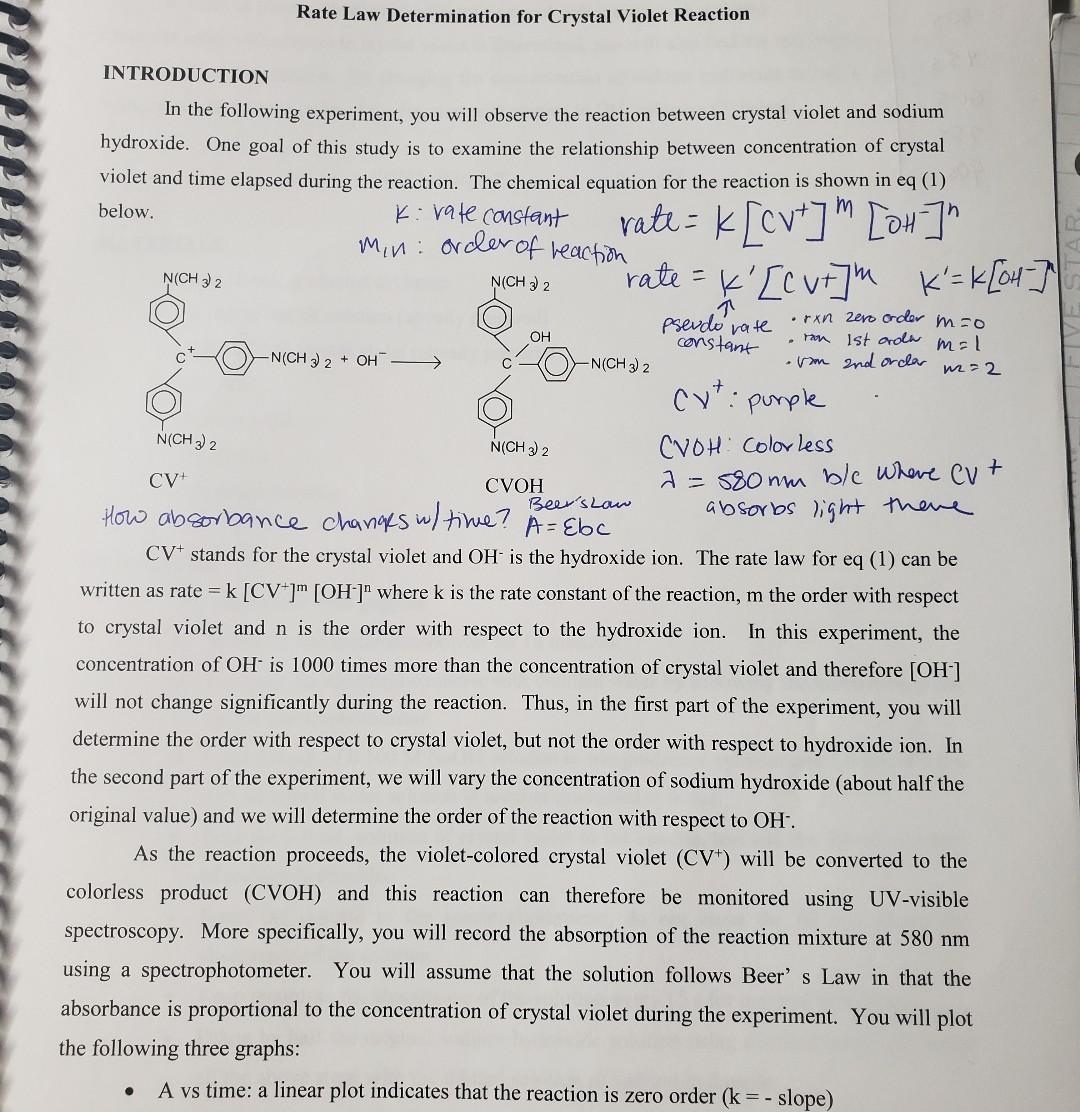 Rate Law Determination for Crystal Violet Reaction
INTRODUCTION
In the following experiment, you will observe the reaction between crystal violet and sodium
hydroxide. One goal of this study is to examine the relationship between concentration of crystal
violet and time elapsed during the reaction. The chemical equation for the reaction is shown in eq (1)
below.
K : rate constant
m,n : order of reaction
rate = K [CV⁺]ᵐ [OH⁻]ⁿ
rate = K' [CV+]ᵐ K' = K[OH⁻]ⁿ
pseudo rate
constant
• rxn zero order m=0
• rxn 1st order m=1
• rxn 2nd order m=2
N(CH 3) 2
C⁺
N(CH 3) 2 + OH⁻ →
N(CH 3) 2
CV⁺
N(CH 3) 2
OH
C
N(CH 3) 2
N(CH 3) 2
CVOH
CV⁺ : purple
CVOH: Colorless
λ = 580 nm b/c where CV +
absorbs light there
How absorbance changes w/ time?
Beer's Law
A = Ɛbc
CV⁺ stands for the crystal violet and OH⁻ is the hydroxide ion. The rate law for eq (1) can be
written as rate = k [CV⁺]ᵐ [OH⁻]ⁿ where k is the rate constant of the reaction, m the order with respect
to crystal violet and n is the order with respect to the hydroxide ion. In this experiment, the
concentration of OH⁻ is 1000 times more than the concentration of crystal violet and therefore [OH⁻]
will not change significantly during the reaction. Thus, in the first part of the experiment, you will
determine the order with respect to crystal violet, but not the order with respect to hydroxide ion. In
the second part of the experiment, we will vary the concentration of sodium hydroxide (about half the
original value) and we will determine the order of the reaction with respect to OH⁻.
As the reaction proceeds, the violet-colored crystal violet (CV⁺) will be converted to the
colorless product (CVOH) and this reaction can therefore be monitored using UV-visible
spectroscopy. More specifically, you will record the absorption of the reaction mixture at 580 nm
using a spectrophotometer. You will assume that the solution follows Beer' s Law in that the
absorbance is proportional to the concentration of crystal violet during the experiment. You will plot
the following three graphs:
• A vs time: a linear plot indicates that the reaction is zero order (k = - slope)
FIVE STAR